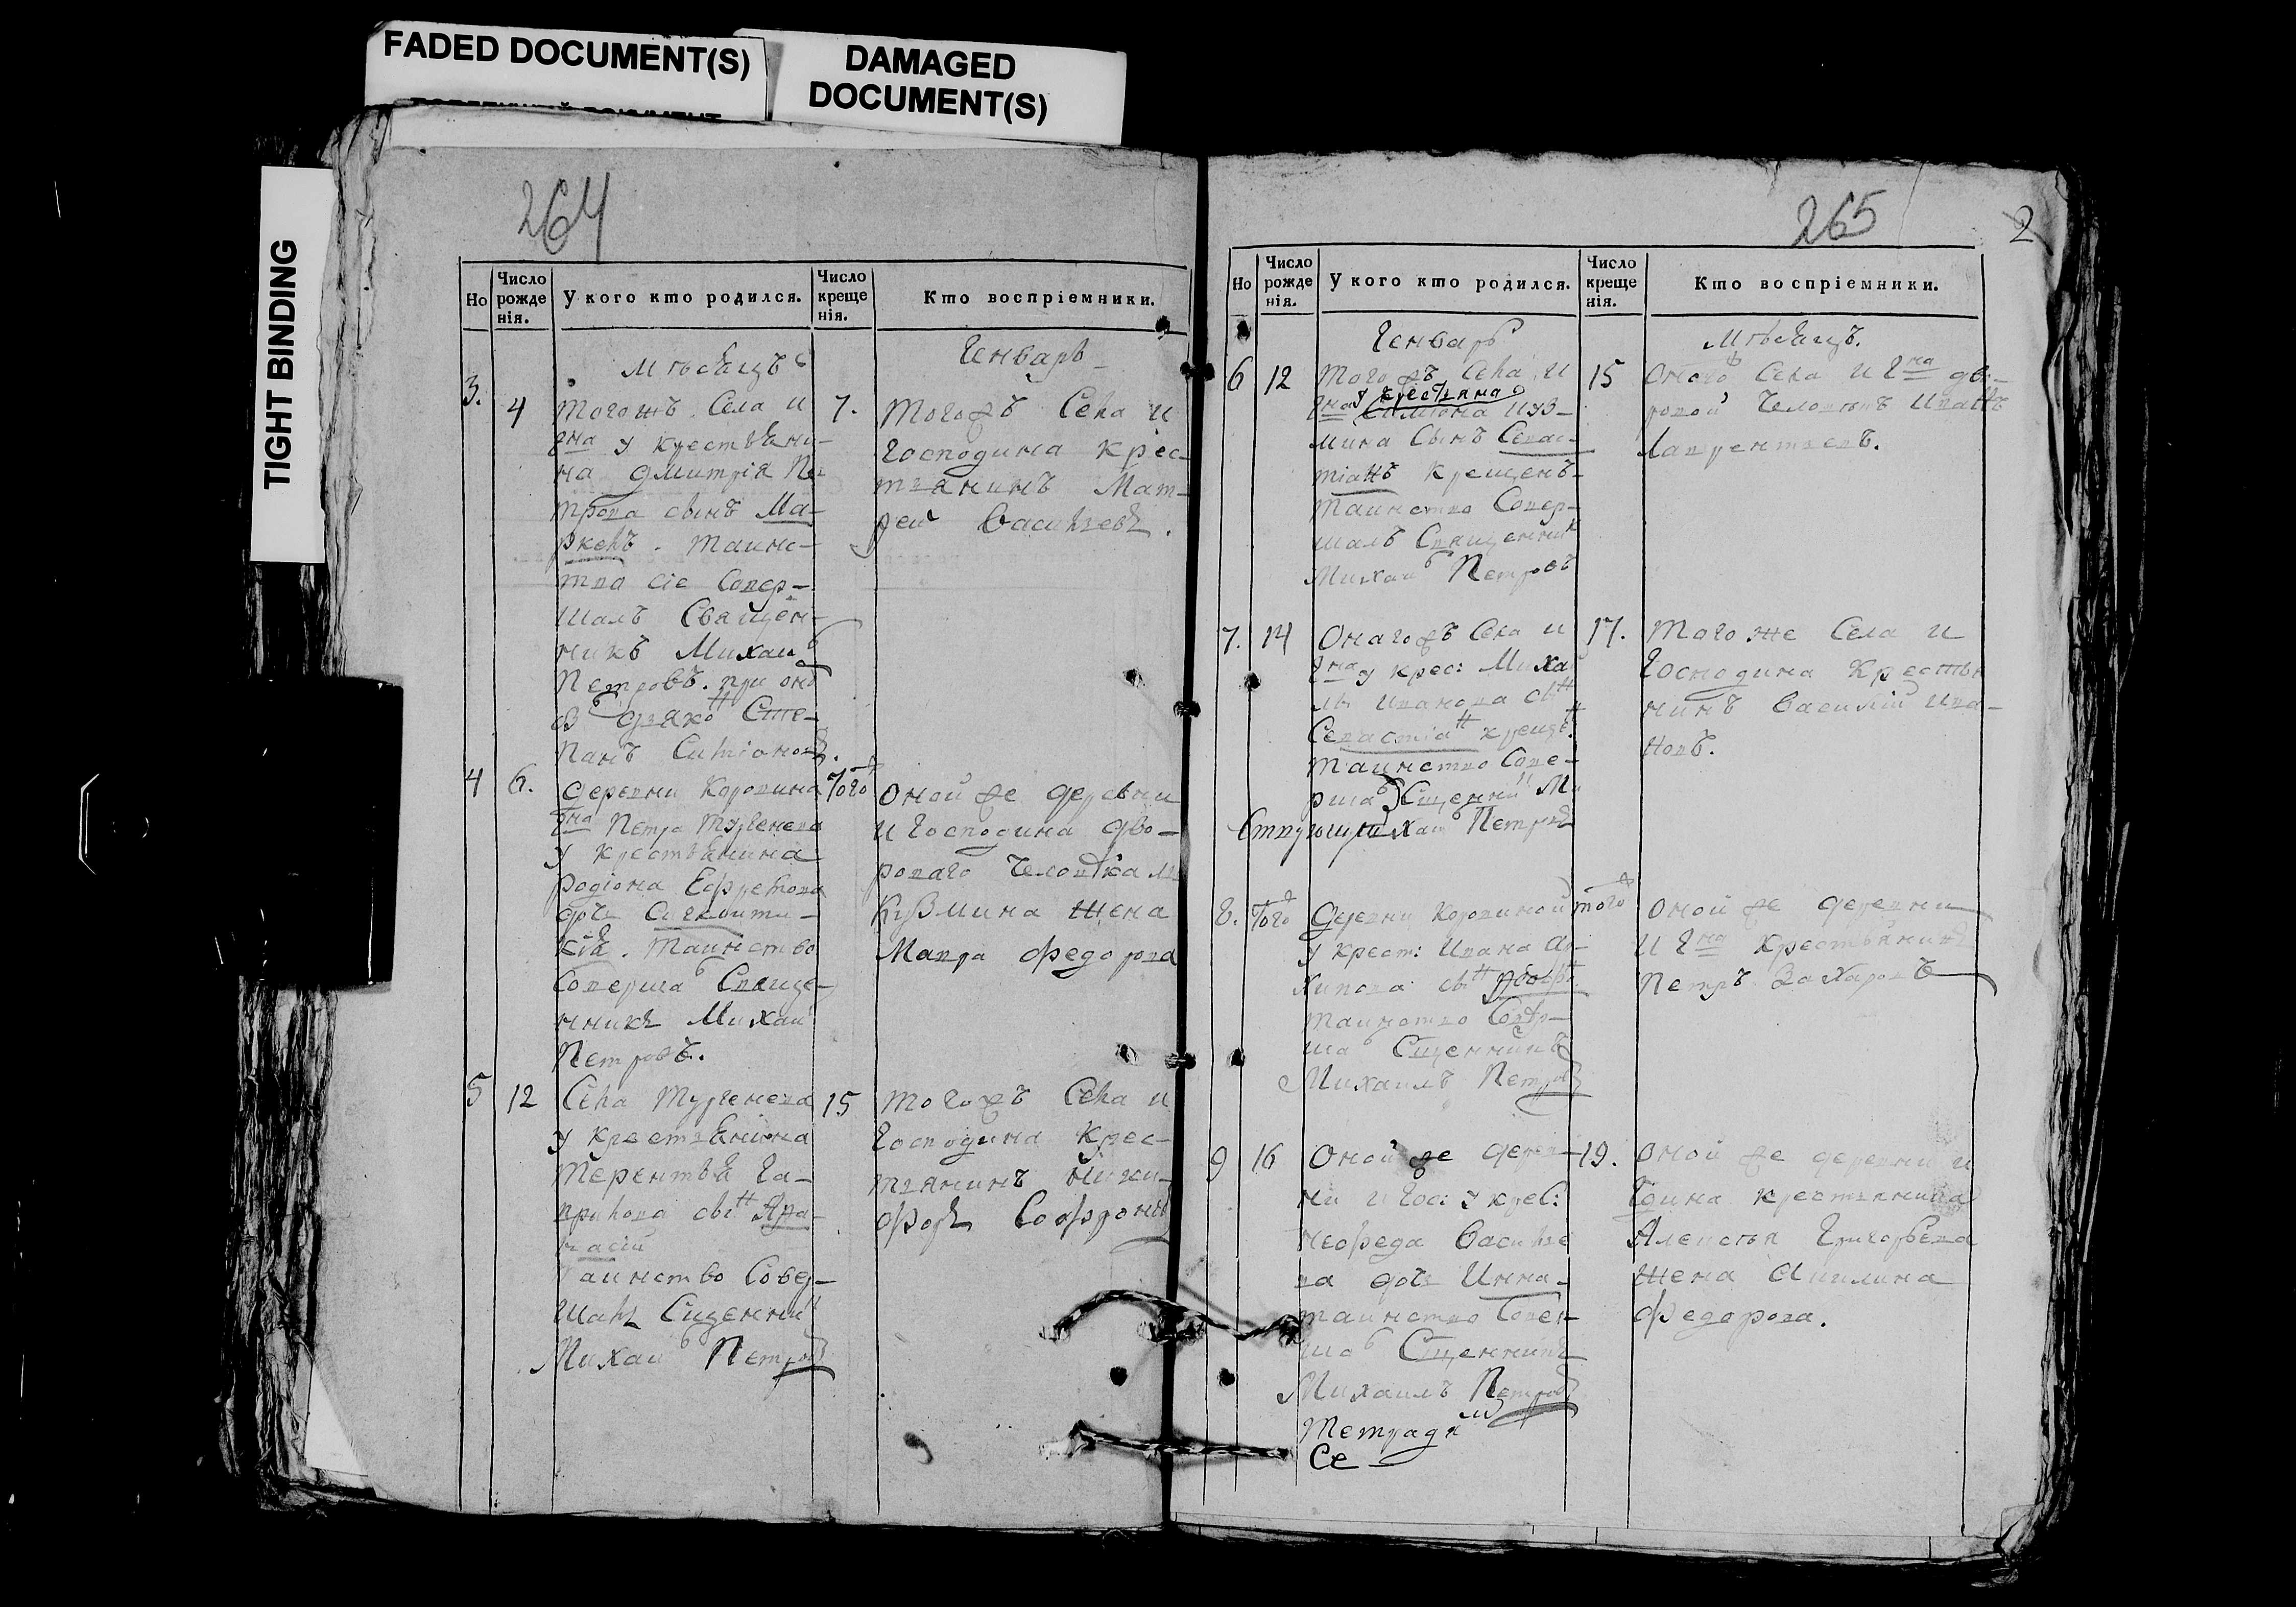 FADED DOCUMENT(S)
DAMAGED
DOCUMENT(S)
TIGHT BINDING
264
Но
Число рожде нія.
У кого кто родился.
Число креще нія.
Кто воспріемники.
Мѣсяцъ
Генварь
3.
4
Тогожъ Села и
гна у крестьяни-
на Дмитрія Пе-
трова сынъ Ма-
ркелъ. Таинс-
тва сіе Совер-
шалъ Священ-
никъ Михаи
Петровъ. при
Сте-
панъ
7.
Тогожъ Села и
Господина крес-
тьянинъ Мат-
фей Васильевъ.
4
6.
Деревни Коровина
гна Петра Тургенева
у крестьянина
Родіона
дочь
кія. Таинство
Соверша Свяще-
нникъ Михаи
Петровъ.
того
Оной же деревни
и Господина дво-
роваго человѣка
Кузмина жена
Мавра Федорова
5
12
Села Тургенева
у крестьянина
Терентья Га-
врилова сын
насій
таинство Совер-
шалъ Сщенни
Михаи Петровъ
15
Тогожъ Села и
Господина крес-
тьянинъ Ники-
форъ Софроновъ
265
2
Но
Число рожде нія.
У кого кто родился.
Число креще нія.
Кто воспріемники.
Генварь
Мѣсяцъ.
6
12
Тогожъ Села и
гна у крестьяна
Симіона Куз-
мина Сынъ Севас-
тіанъ крещенъ-
таинство Совер-
шалъ Священник
Михаи Петровъ
15
Оного Села и гна дво-
ровой человекъ Иванъ
Лаврентьевъ.
7.
14
Онагожъ Села и
гна у крес: Миха
лы Иванова сын
Севастіан креще.
таинство Сове-
рша Сщенни Ми
хаи Петровъ
17.
Того же Села и
Господина Крестья
нинъ Василій Ива-
новъ.
8.
того
Деревни Коровиной
у крест: Ивана Ар-
хипова сын
таинство Совер-
ша Сщенникъ
Михаилъ Петровъ
того
Оной же деревни
и гна крестьянинъ
Петръ Захаровъ
9
16
Оной же дерев-
ни и Гос: у крес:
Нефеда Василье
ва дочь Инна-
таинство Совер-
ша Сщенникъ
Михаилъ Петровъ
Тетради
Се
19.
Оной же деревни и
Гдина крестьянина
Алексѣя Григорьева
жена Акилина
Федорова.